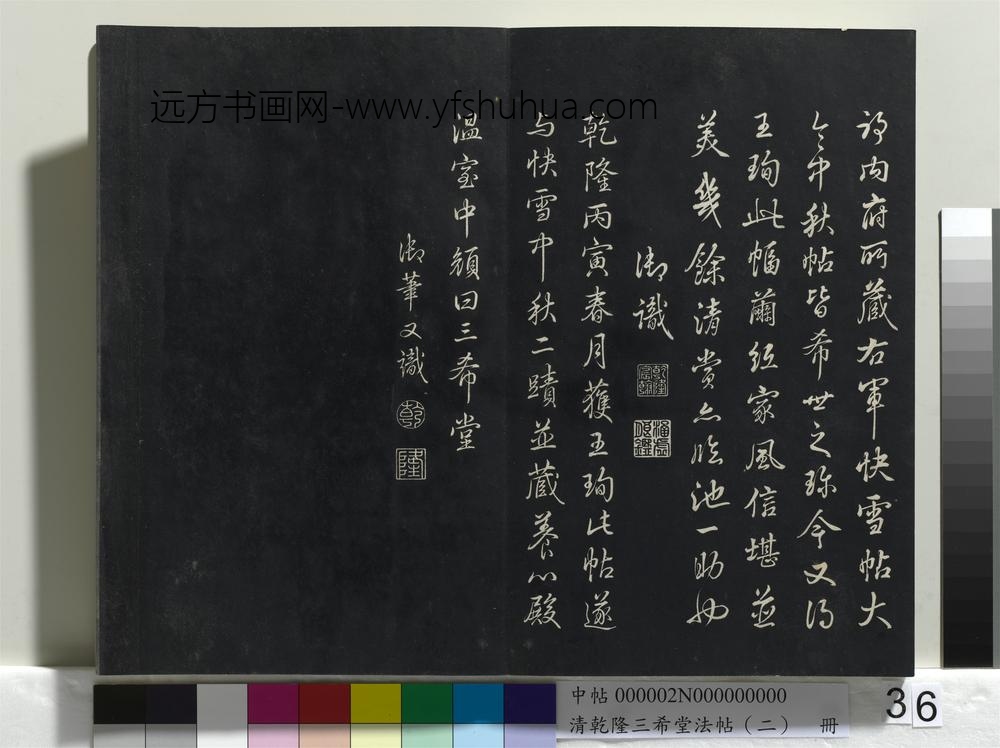 远方书画网-www.yfshuhua.com
耶內府所藏右軍快雪帖大
令中秋帖皆希世之珍今又得
王珣此幅繭紙家風信堪並
美幾餘清賞亦臨池一助也
御識
乾隆宸翰
涵虛朗鑑
乾隆丙寅春月獲王珣此帖遂
与快雪中秋二蹟並藏養心殿
溫室中顏曰三希堂
御筆又識
乾
隆
中帖 000002N000000000
清乾隆三希堂法帖（二） 冊
36